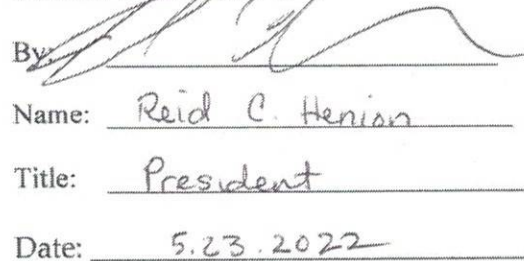 By:
Name: Reid C. Henion
Title: President
Date: 5.23.2022